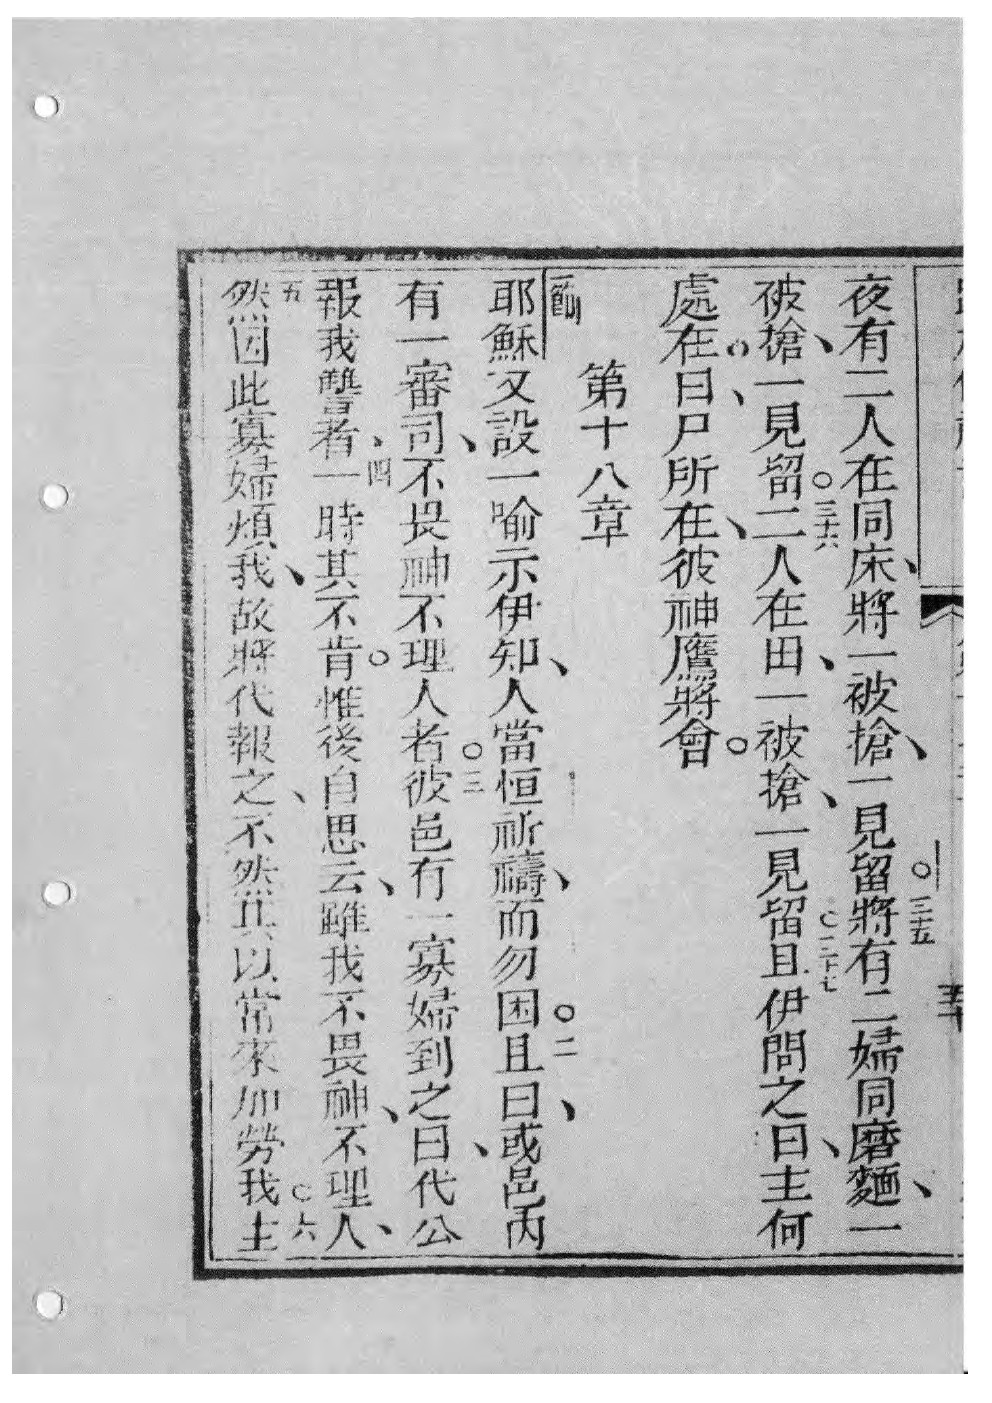 夜有二人在同床、將一被搶、一見留。三十五將有二婦同磨麵、一
被搶、一見留。三十六二人在田、一被搶、一見留。三十七且伊問之曰、主何
處在。曰、尸所在、彼神鷹將會。
第十八章
一節耶穌又設一喻示伊知、人當恒祈禱、而勿困。二且曰、或邑內
有一審司、不畏神不理人者。三彼邑有一寡婦到之曰、代公
報我讐者、四一時其不肯。惟後自思云、雖我不畏神、不理人、
五然因此寡婦煩我、故將代報之、不然其以常來加勞我。六主